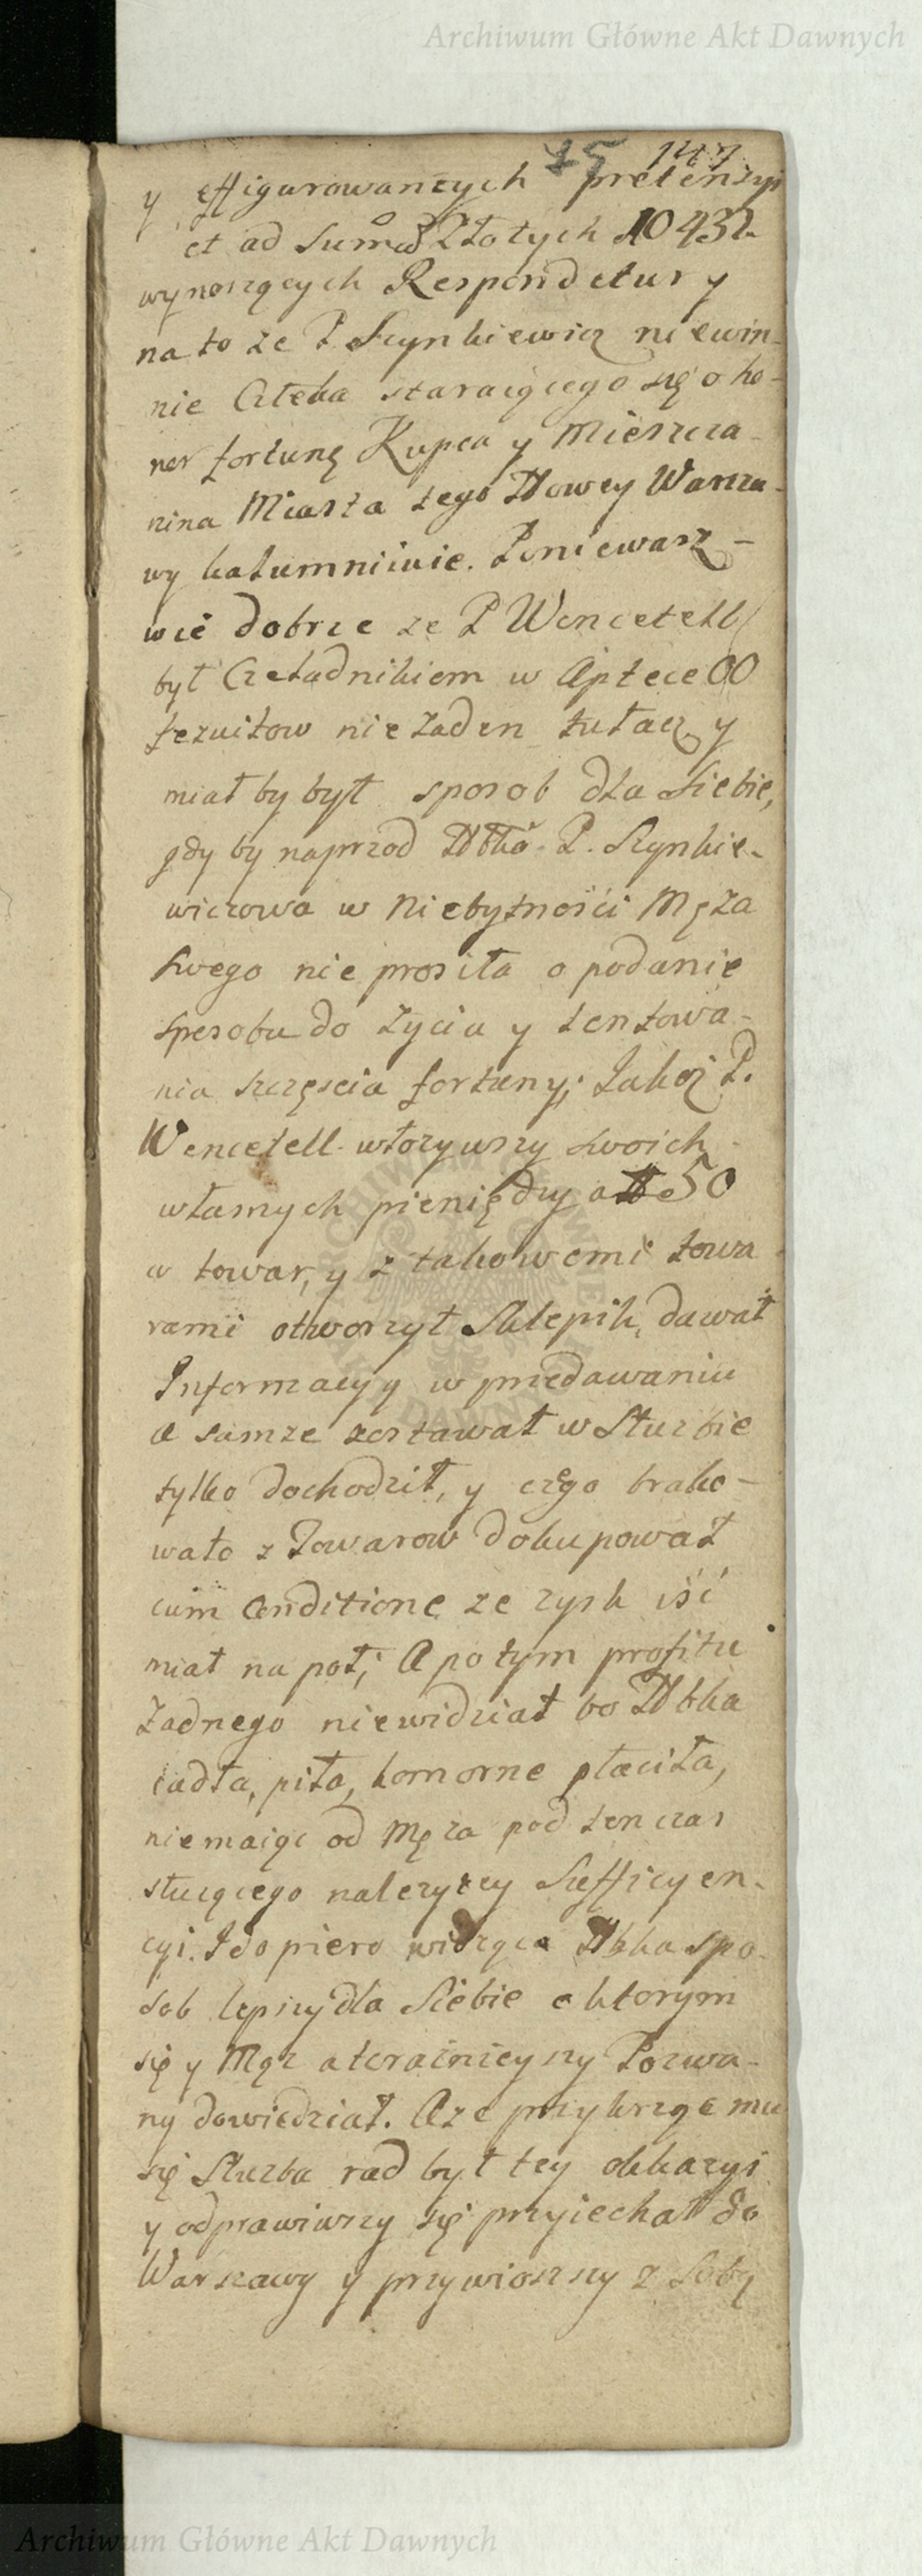 Archiwum Główne Akt Dawnych
75 147
y effigurowanczych pretensyi
et ad Sumã Złotych 10432
wynoszących Respondetur y
na to że P Szynkiewicz niewin-
nie Człeka staraiącego się o ho-
nor fortunę Kupca y Mieszcza-
nina Miasta tego Nowey Warsza-
wy kalumniiuie. Poniewasz –
wie dobrze ze P Wencetell
był Czeladnikiem w Aptece OO
Jezuitow nie żaden tułacz y
miałby był sposob dla Siebie,
gdy by naprzod P. Szynkie-
wiczowa w Niebytności Męża
Swego nie prosiła o podanie
sposobu do życia y tentowa-
nia szczęscia fortuny; Jakoż P.
Wencetell włozywszy swoich
własnych pieniędzy 50
w towar, y z takowemi towa-
rami otworzył Sklepik, dawał
Informacyą w przedawaniu
A samze zostawał w Służbie
tylko dochodził, y czego brako-
wało z Towarow dokupował
cum Conditione ze zysk iść
miał na poł; A potym profitu
Żadnego niewidział bo
iadła, piła, komorne płaciła,
niemaiąc od Męża pod ten czas
służącego nalezytey Sufficyen-
cyi. I dopiero widząca spo-
sob lepszy dla Siebie o ktorym
się y Mąż ateraźnieyszy Pozwa-
ny dowiedział. Aże przykrzyła mu
się Służba rad był tey okkazyi
y odprawiwszy się przyiechał do
Warszawy y przywiozszy z Sobą
Archiwum Główne Akt Dawnych